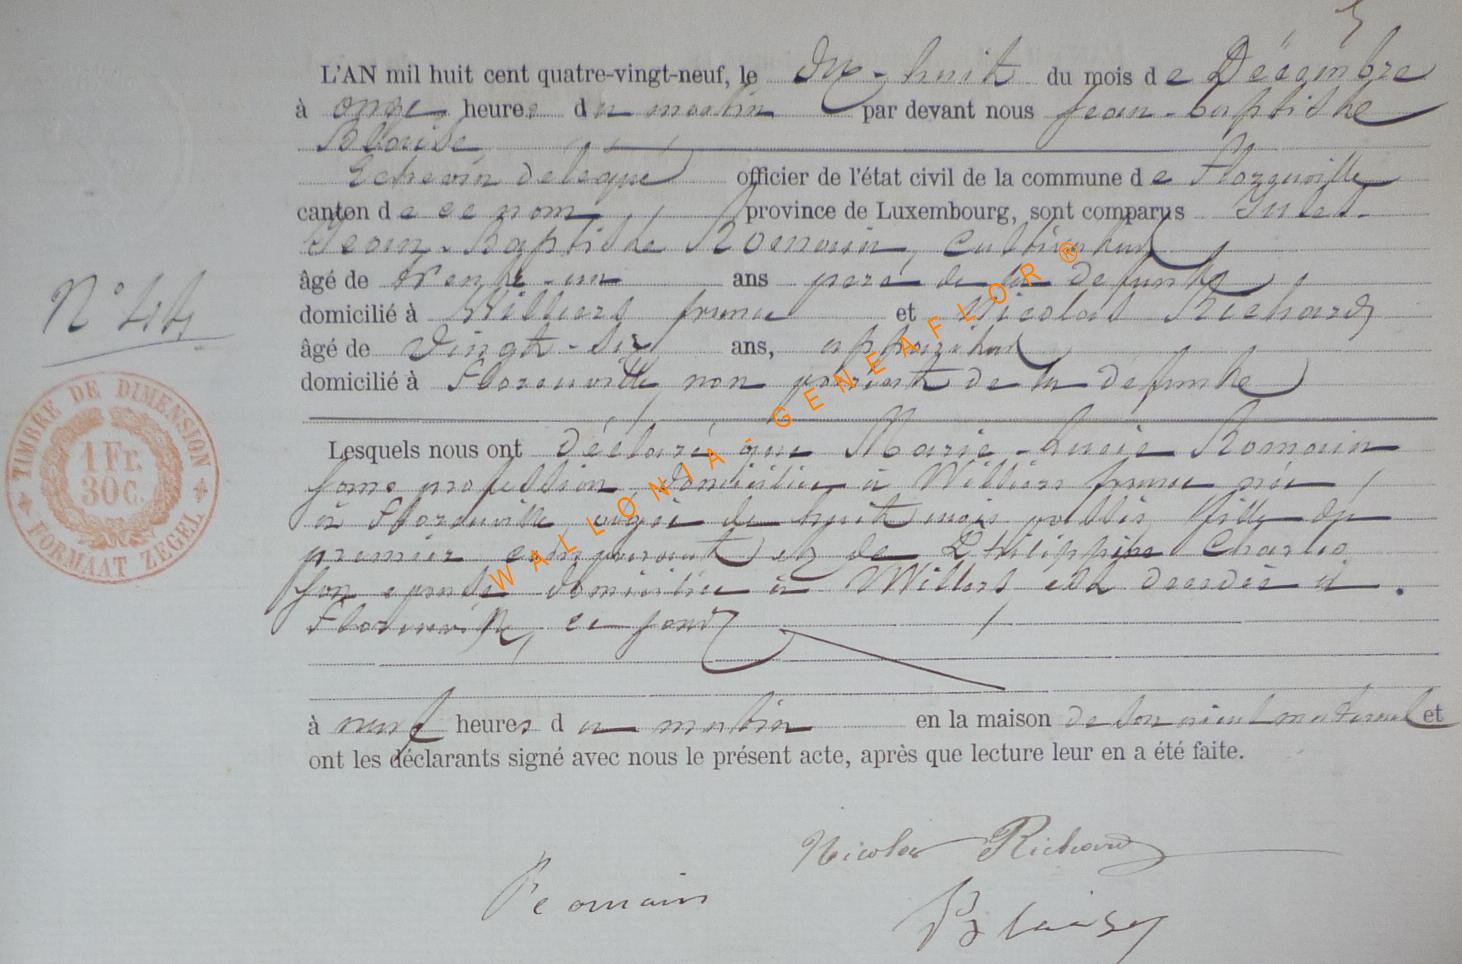 L'AN mil huit cent quatre-vingt-neuf, le dix-huit du mois de Décembre
à onze heures du matin par devant nous Jean-baptiste
Blaise
Echevin délégué officier de l'état civil de la commune de Florenville
canton de ce nom province de Luxembourg, sont comparus
Jean-Baptiste Romain, cultivateur
âgé de trente-un ans père de la défunte
domicilié à Williers france et Nicolas Richard
âgé de vingt-six ans, appariteur
domicilié à Florenville, non parent de la défunte
Lesquels nous ont déclaré que Marie-Lucie Romain
sans profession, domiciliée à Williers france née
à Florenville, agée de huit mois passés, fille du
premier comparant et de Philippine Charlo
son epouse domiciliée à Willers est decedée à
Florenville, ce jour
à neuf heures du matin en la maison de son aieul maternel et
ont les déclarants signé avec nous le présent acte, après que lecture leur en a été faite.
Nicolas Richard
Romain
Blaise
N° 44
TIMBRE DE DIMENSION
1 Fr.
30 C.
FORMAAT ZEGEL
WALLONIA-GENEAFLOR®